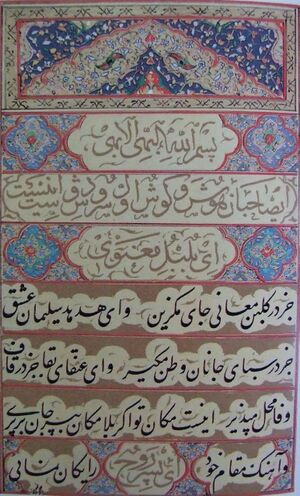 بسم الله البهی الابهی
ای صاحبان هوش و گوش اول سروش دوست اینست
ای بلبل معنوی
جز در گلبن معانی جای مگزین و ای هدهد سلیمان عشق
جز در سبای جانان وطن مگیر و ای عنقای بقا جز در قاف
وفا محل مپذیر اینست مکان تو اگر بلامکان بپر جان برپری
و آهنگ مقام خود رایگان نمائی
ای پسر روح